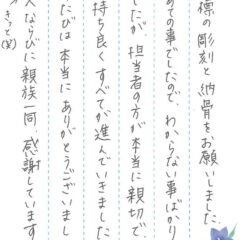 標の彫刻と納骨をお願いしました。
めての事でしたので、わからない事ばかり
したが、担当者の方が本当に親切で、
持ち良くすべてが進んでいきました
たびは本当にありがとうございまし
人ならびに親族一同、感謝しています
きっと(笑)